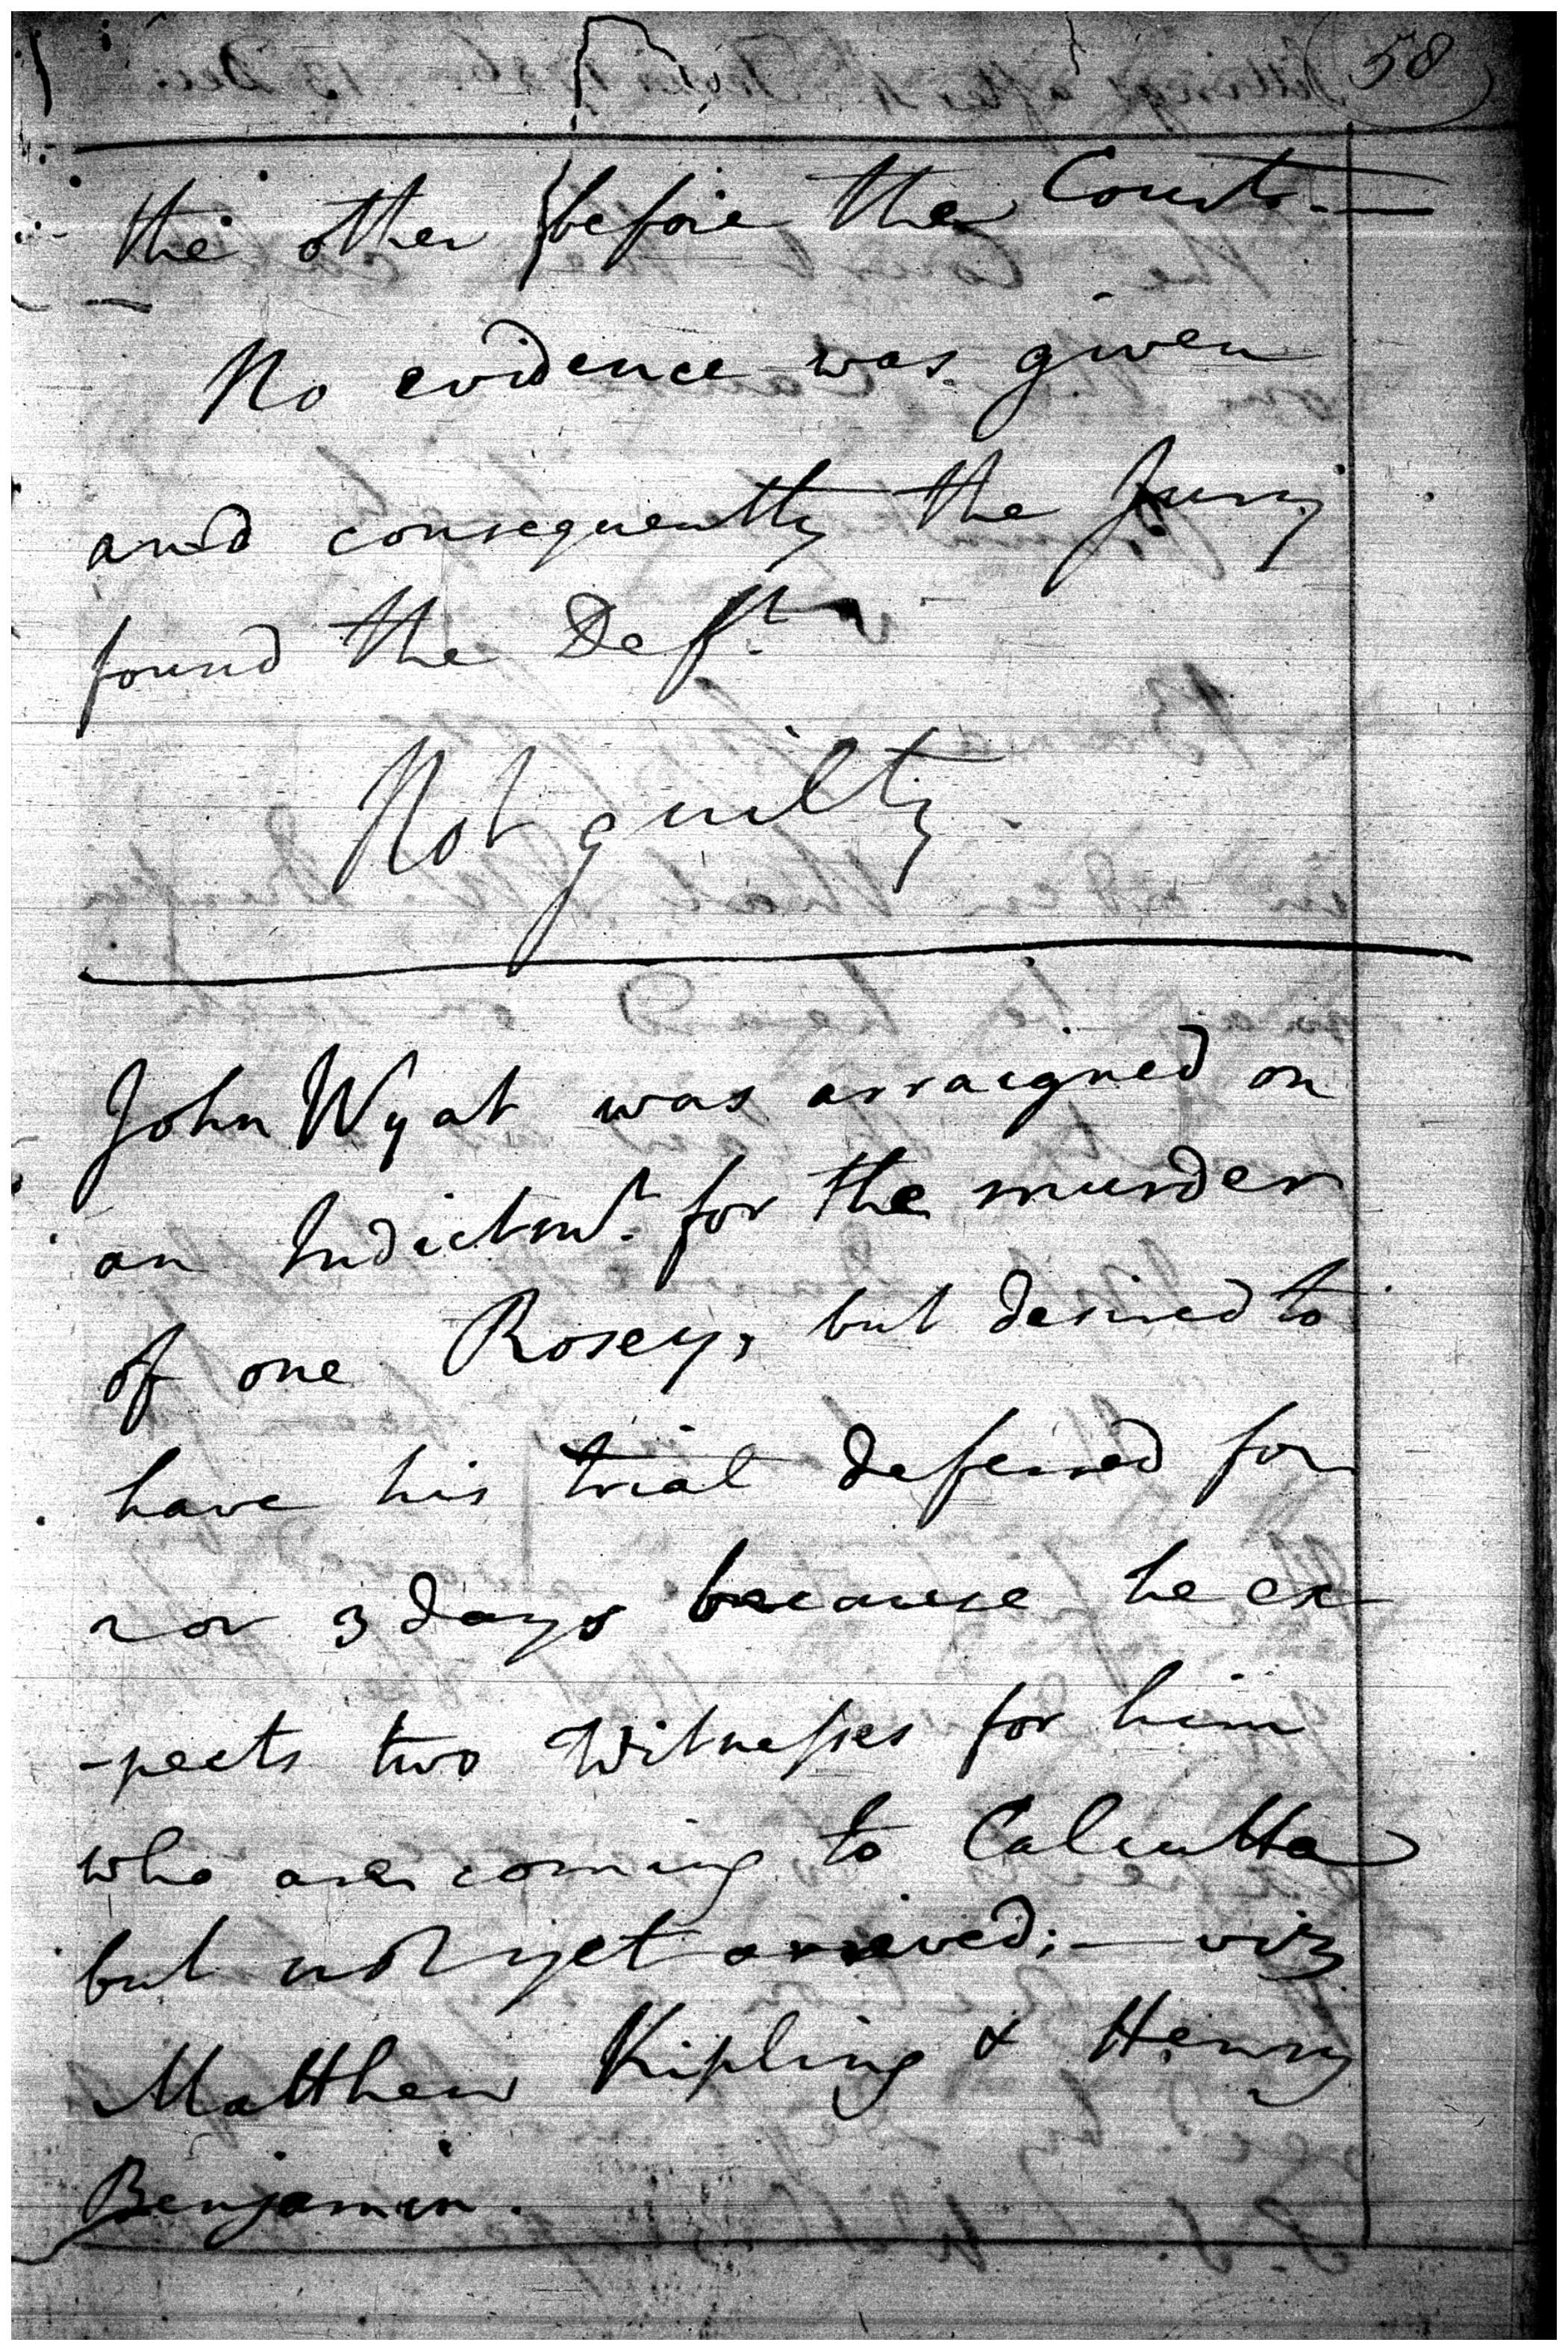 58
the other before the Court. —
No evidence was given
and consequently the Jury
found the Deft.
Not guilty
John Wyat was arraigned on
an Indictmt. for the murder
of one Rosey, but desired to
have his trial deferred for
2 or 3 days because he ex
-pects two Witnesses for him
who are coming to Calcutta
but not yet arrived; — viz
Matthew Kipling & Henry
Benjamin.